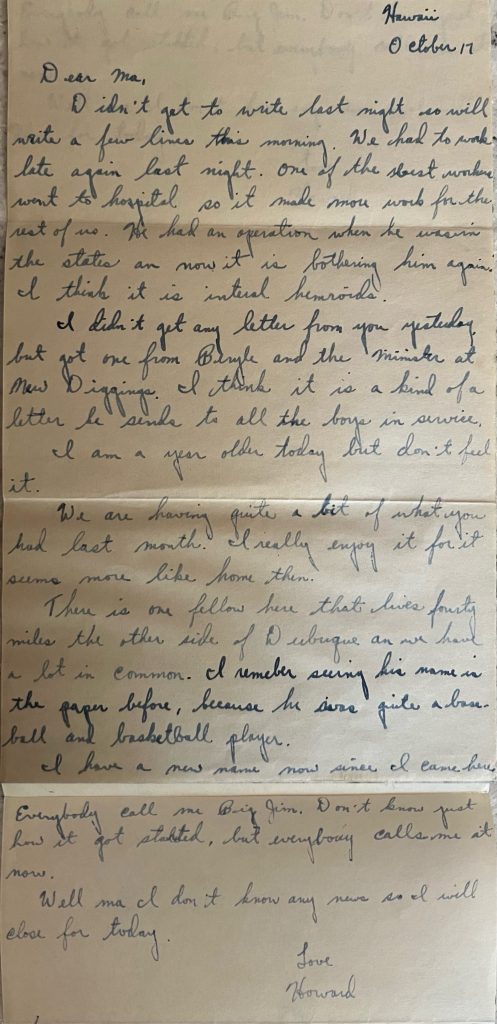 Hawaii
October 17
Dear Ma,
Didn't get to write last night so will
write a few lines this morning. We had to work
late again last night. One of the best workers
went to hospital so it made more work for the
rest of us. He had an operation when he was in
the states an now it is bothering him again.
I think it is interal hemroids.
I didn't get any letter from you yesterday
but got one from Beryle and the minister at
New Diggings. I think it is a kind of a
letter he sends to all the boys in service.
I am a year older today but don't feel
it.
We are having quite a bit of what you
had last month. I really enjoy it for it
seems more like home then.
There is one fellow here that lives fourty
miles the other side of Dubuque an we have
a lot in common. I remeber seeing his name in
the paper before, because he was quite a base-
ball and basketball player.
I have a new name now since I came here
Everybody call me Big Jim. Don't know just
how it got started, but everybody calls me it
now.
Well ma I don't know any news so I will
close for today.
Love
Howard